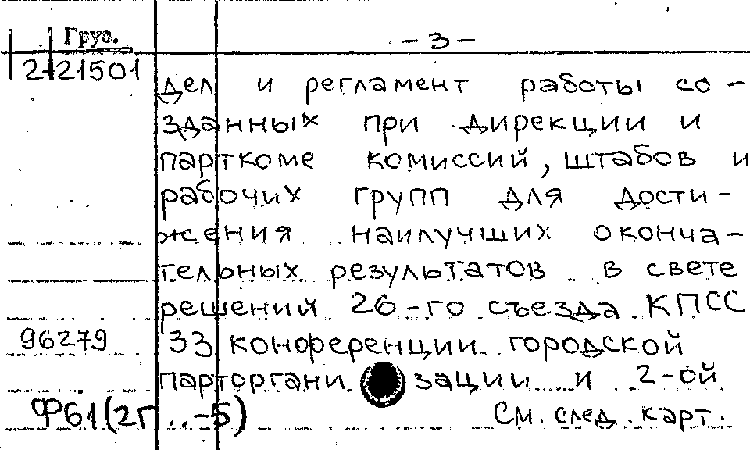 Груз. -3-
2-21501
дел и регламент работы со-
зданных при дирекции и
парткоме комиссий, штабов и
рабочих групп для дости-
жения наилучших оконча-
тельных результатов в свете
решений 26-го съезда КПСС
96279 33 конференции городской
парторгани зации и 2-ой
Ф61(2Г..-5) См. след. карт.